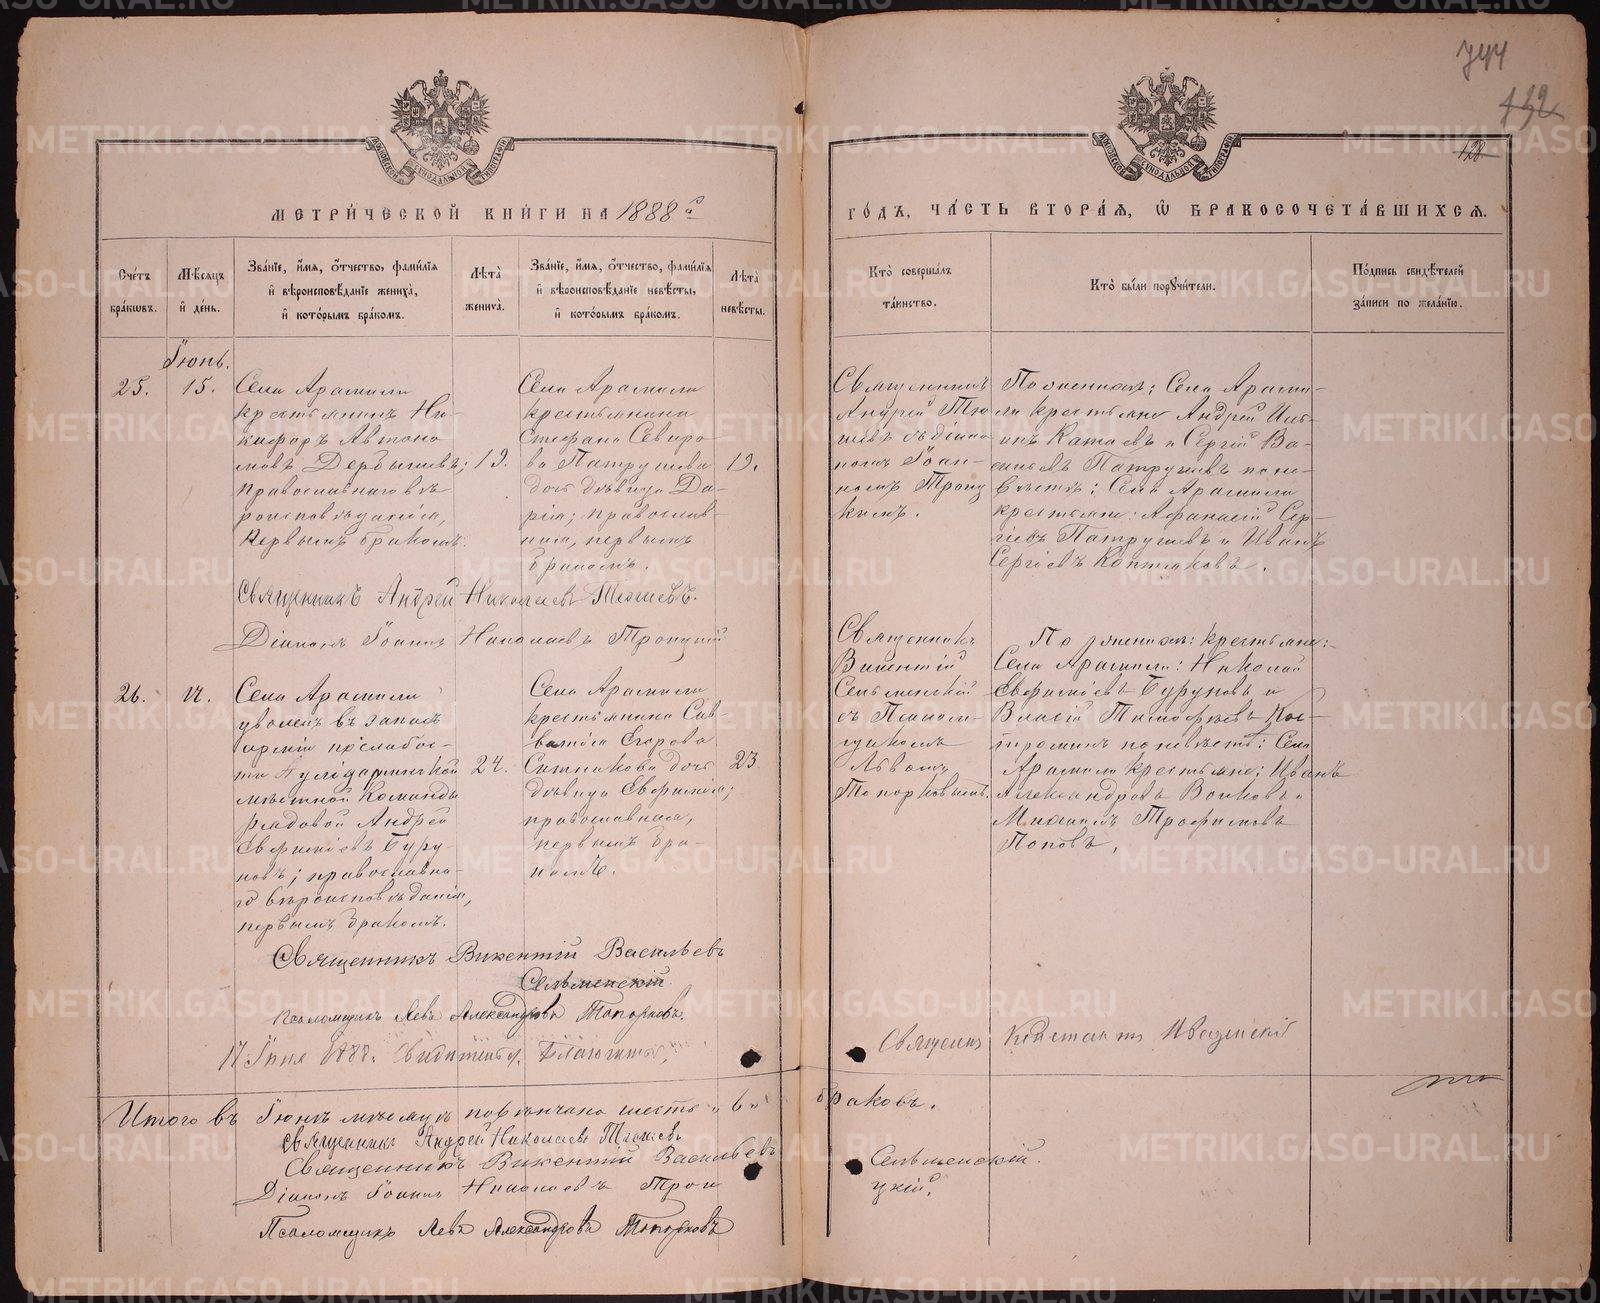 744
132
128
МОСКОВСКОЙ СѴНОДАЛЬНОЙ ТИПОГРАФІИ
МОСКОВСКОЙ СѴНОДАЛЬНОЙ ТИПОГРАФІИ
МЕТРИ́ЧЕСКОЙ КНИ́ГИ НА 1888й
ГО́ДЪ, ЧА́СТЬ ВТОРА́Я, Ѡ БРАКОСОЧЕТА́ВШИХСЯ.
Сче́тъ бра́ковъ.
Мѣ́сяцъ и́ де́нь.
Зва́нїе, и́мя, ѻ́тчество, фами́лїя и́ вѣроисповѣ́данїе жениха̀, и́ кото́рымъ бра́комъ.
Лѣта̀ жениха̀.
Зва́нїе, и́мя, ѻ́тчество, фами́лїя и́ вѣроисповѣ́данїе невѣ́сты, и́ кото́рымъ бра́комъ.
Лѣта̀ невѣ́сты.
Кто̀ соверша́лъ та́инство.
Кто̀ бы́ли порꙋчи́тели.
По́дпись свидѣ́телей за́писи по жела́нїю.
Іюнь.
25.
15.
Села Арамили
крестьянинъ Ни-
кифоръ Автоно
мовъ Дербышевъ;
православнаго вѣ
роисповѣданія,
первымъ бракомъ.
19.
Села Арамили
крестьянина
Стефана Севиро
ва Патрушева
дочь дѣвица Да-
рія; православ-
ная, первымъ
бракомъ.
19.
Священникъ
Андрей Тю
шевъ съ діако
номъ Іоан-
номъ Троиц
кимъ.
По женихѣ: Села Арами-
ли крестьяне Андрей Иль-
инъ Катаевъ и Сергій Ва-
сильевъ Патрушевъ по не-
вѣстѣ: Села Арамили
крестьяне: Афанасій Сер-
гіевъ Патрушевъ и Иванъ
Сергіевъ Коптяковъ.
Священникъ Андрей Николаевъ Тюшевъ.
Діаконъ Іоаннъ Николаевъ Троицкій
26.
Села Арамили
уволенъ въ запасъ
арміи по слабос-
ти
мѣстной Команды
рядовой Андрей
Евфиміевъ Буру-
новъ; православна-
го вѣроисповѣданія,
первымъ бракомъ.
24.
Села Арамили
крестьянина Сав-
ватія Егорова
Ситникова дочь
дѣвица Евфимія;
православная,
первымъ бра-
комъ.
23.
Священникъ
Викентій
Сельменскій
съ Псалом-
щикомъ
Львомъ
Топорковымъ.
По женихѣ: крестьяне:
Села Арамили: Николай
Евфиміевъ Буруновъ и
Власій Тимофѣевъ Кос-
троминъ по невѣстѣ: Села
Арамили крестьяне: Иванъ
Александровъ Волковъ и
Михаилъ Трофимовъ
Поповъ.
Священникъ Викентій Васильевъ
Сельменскій
Псаломщикъ Левъ Александровъ Топорковъ.
17 Іюня 1888.
Священ. Константинъ
Итого въ Іюнѣ мѣсяцѣ повѣнчано шесть „6" браковъ.
Священникъ Андрей Николаевъ Тюшевъ
Священникъ Викентій Васильевъ Сельменскій.
Діаконъ Іоаннъ Николаевъ Троицкій.
Псаломщикъ Левъ Александровъ Топорковъ
METRIKI.GASO-URAL.RU